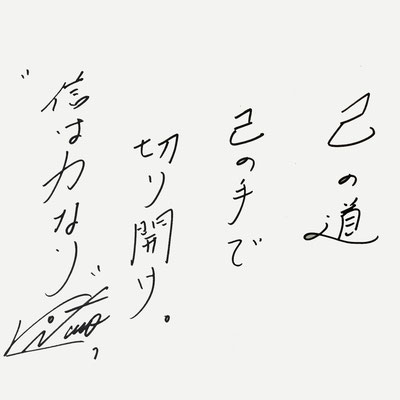 己の道
己の手で
切り開け。
"信は力なり"